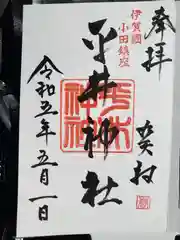 奉拝
伊賀國
小田鎮座
平井神社
令和五年五月一日